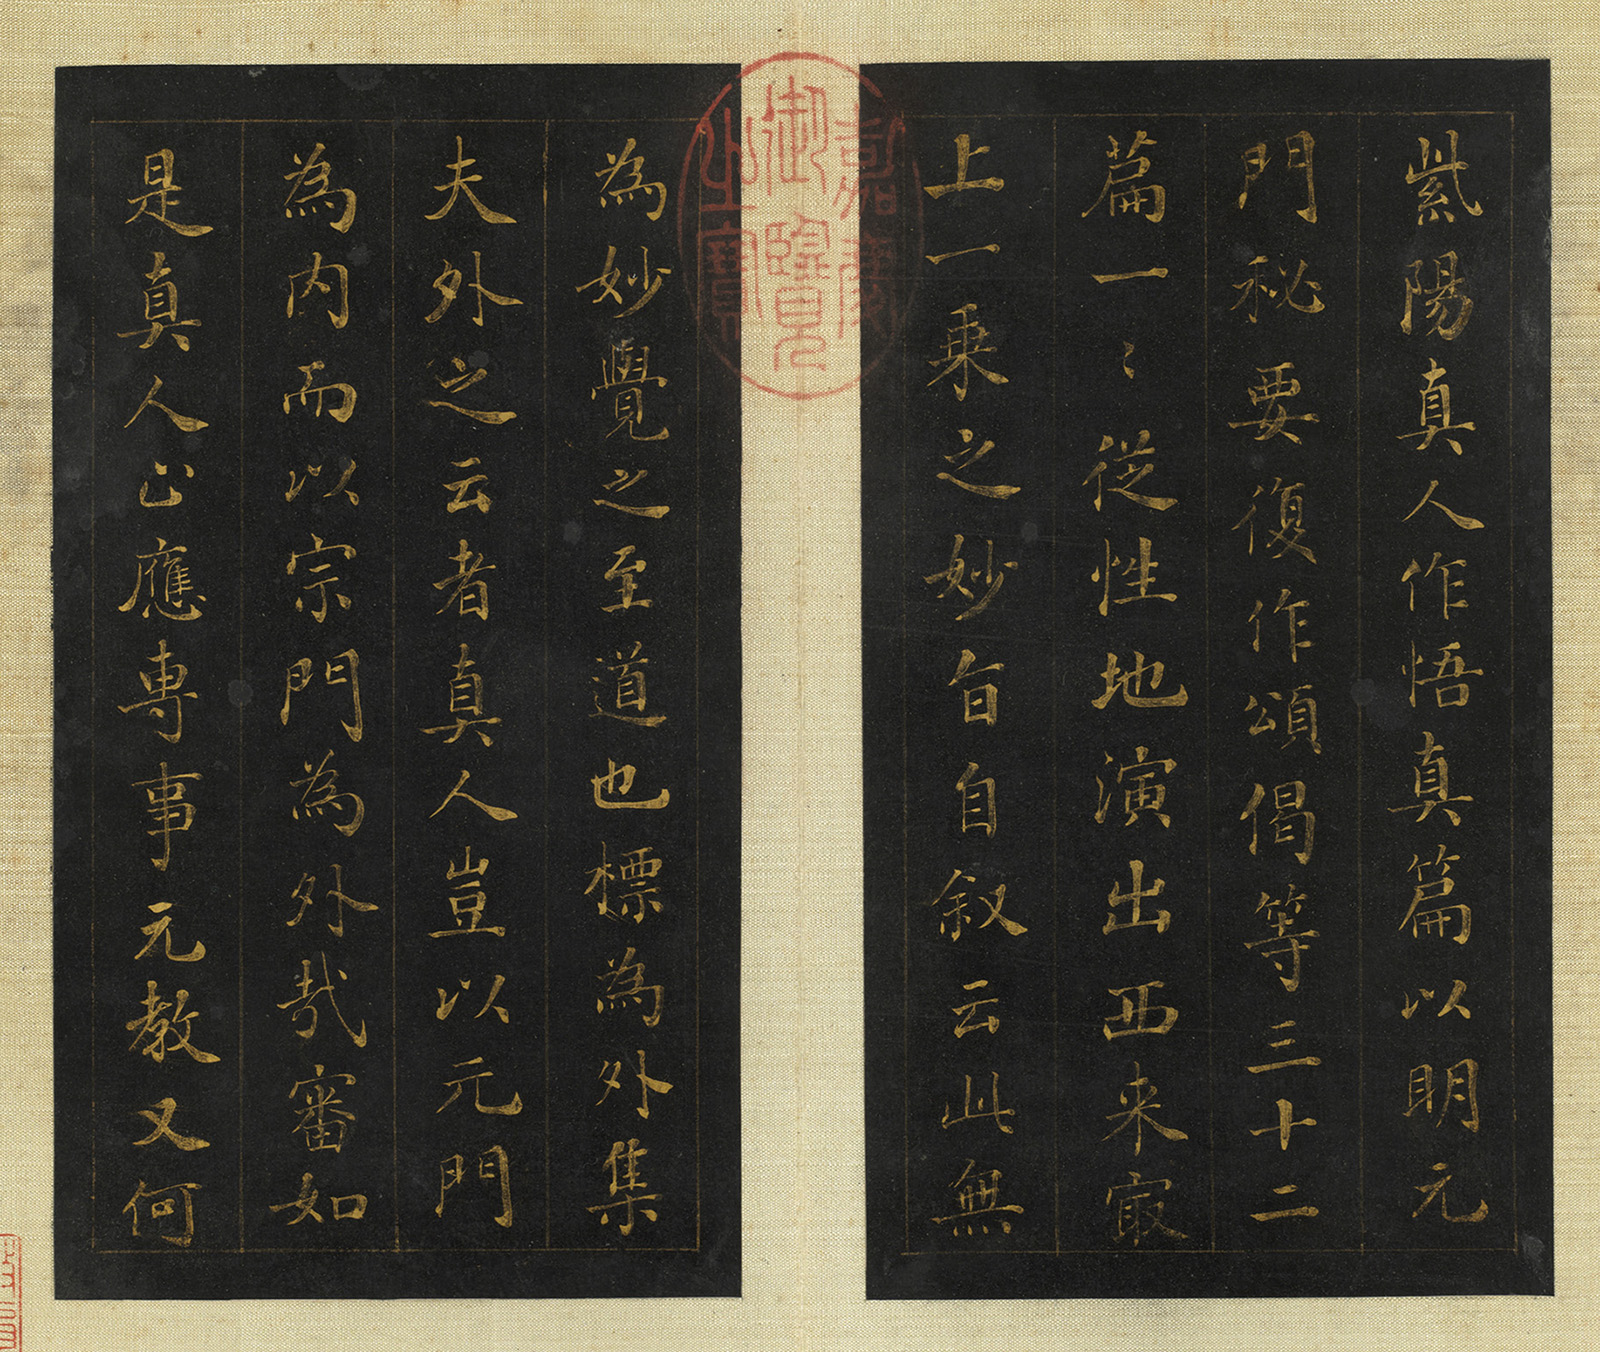 紫陽真人作悟真篇以明元
門秘要復作頌偈等三十二
篇一〻從性地演出西来㝡
上一乗之妙旨自叙云此無
為妙覺之至道也標為外集
夫外之云者真人豈以元門
為内而以宗門為外哉審如
是真人止應専事元教又何
嘉慶
御覽
之寶